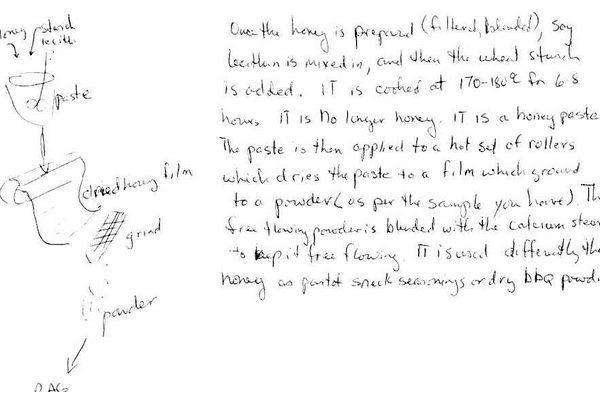 honey starch
lecithin
paste
dried honey film
grind
powder
BAGS
Once the honey is prepared (filtered, blended), soy
lecithin is mixed in, and then the wheat starch
is added. IT is cooked at 170-180° for 6-8
hours IT is No longer honey. IT is a honey paste
The paste is then applied to a hot set of rollers
which dries the paste to a film which ground
to a powder (as per the sample you have). The
free flowing powder is blended with the calcium stear
to keep it free flowing. IT is used differently tha
honey as part of snack seasonings or dry BBQ powde